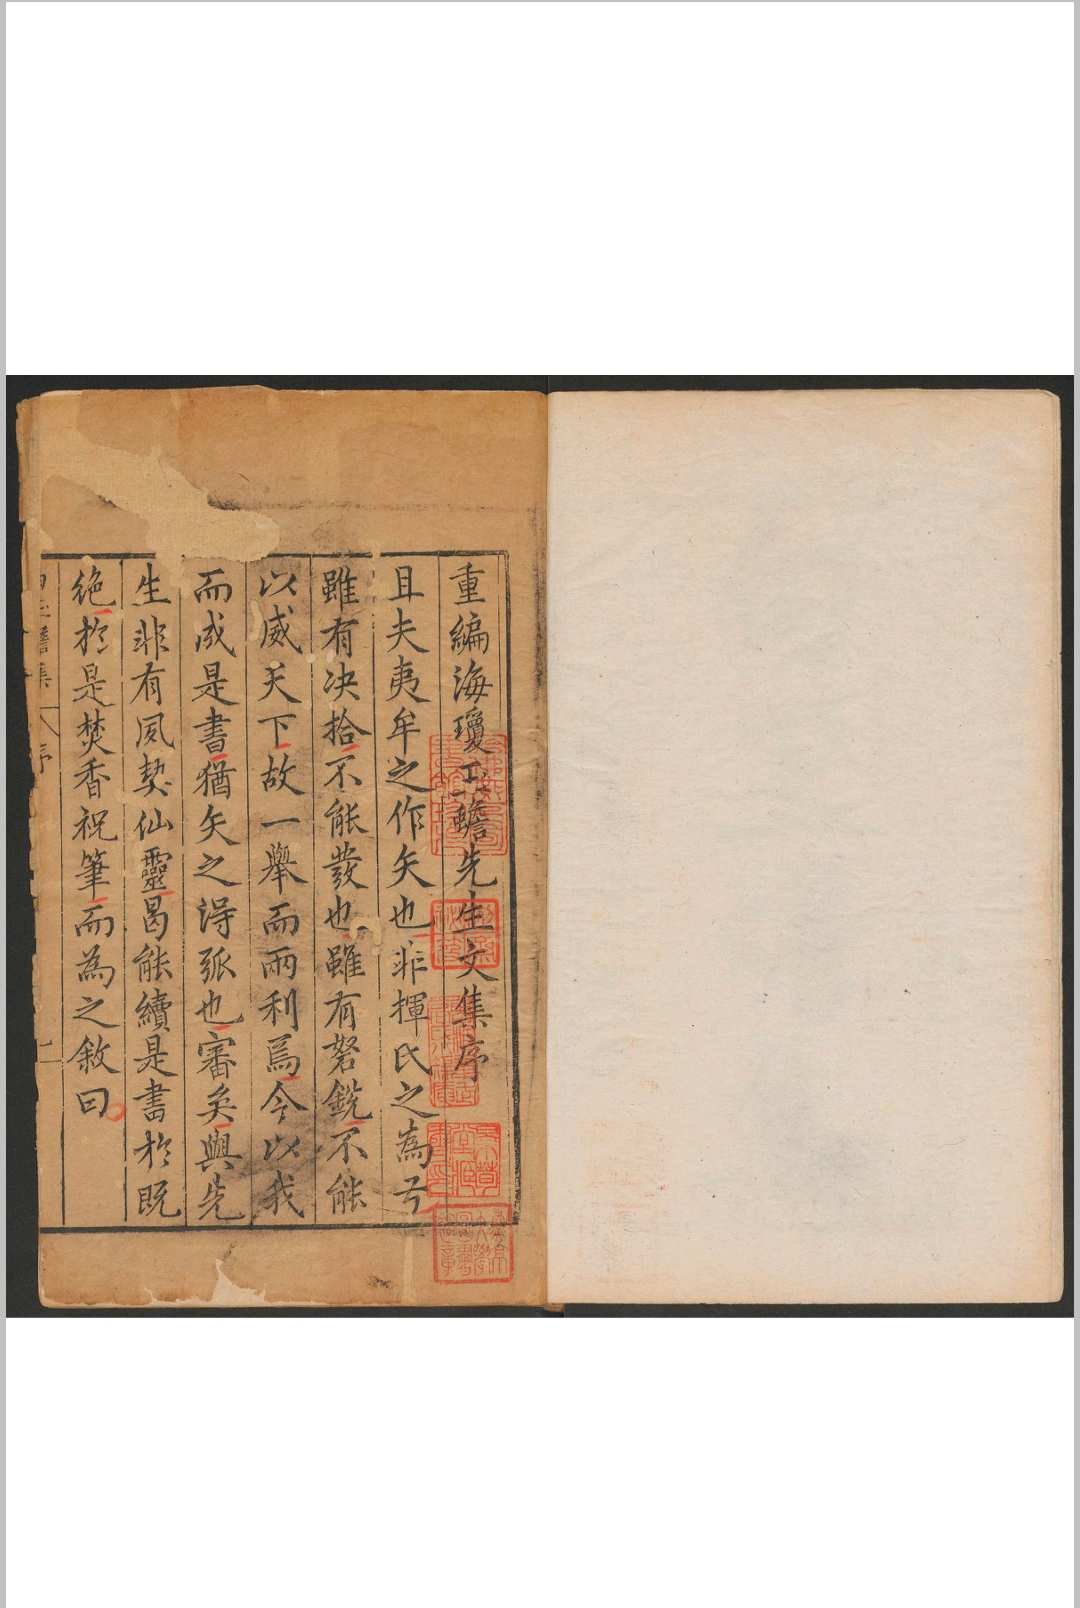 重編海瓊玉蟾先生文集序
且夫夷牟之作矢也非揮氏之為弓
雖有决拾不能發也雖有砮鋭不能
以威天下故一舉而兩利焉今以我
而成是書猶矢之得弧也審矣與先
生非有夙契仙靈曷能續是書扵既
絶扵是焚香祝筆而為之敘曰
蟾集 序